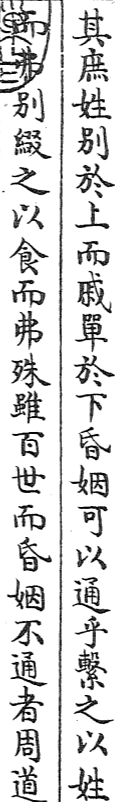 其庶姓别於上而戚單於下昏姻可以通乎繫之以姓
而弗别綴之以食而弗殊雖百世而昏姻不通者周道